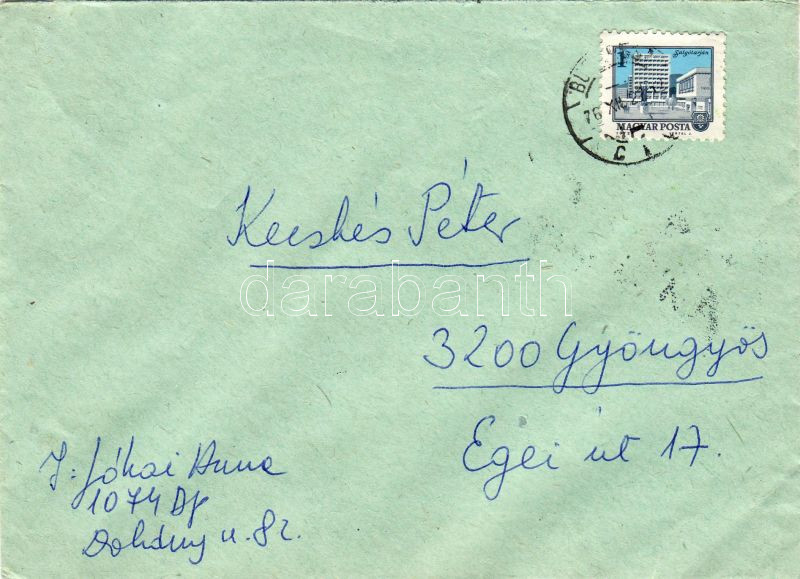 1
Salgótarján
MAGYAR POSTA
76 XII
Kecskés Péter
darabanth
3200 Gyöngyös
Egei út 17.
Jókai Anna
1074 Bp
Dohány u. 82.